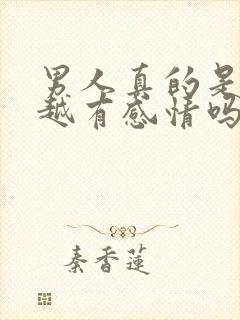 男人真的是
越有感情吗
秦香莲